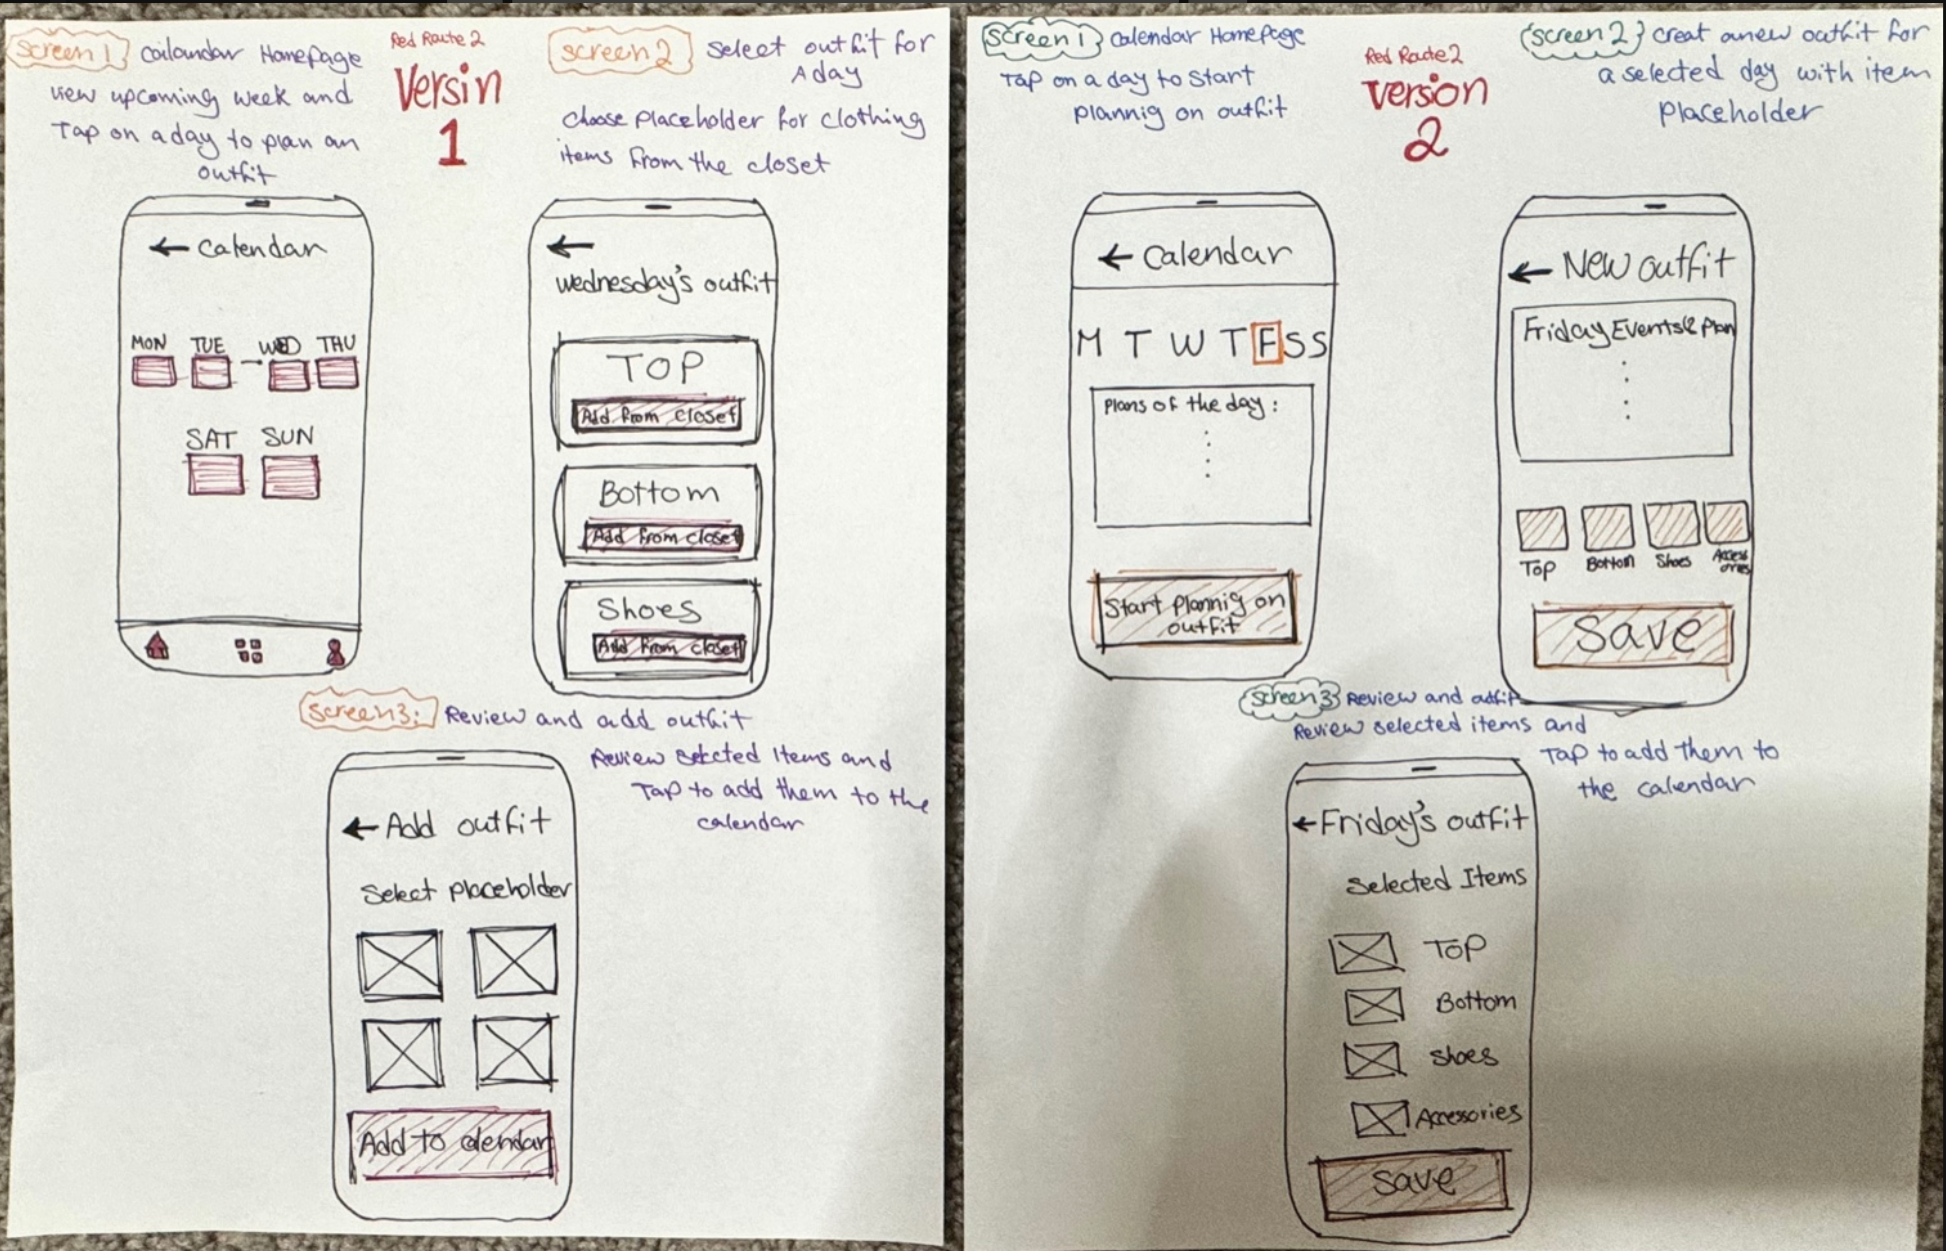 Screen 1
Cailandar Homepage
view upcoming week and
Tap on a day to plan an
outfit
Red Route 2
Versin
1
Screen 2
Select outfit for
A day
choose placeholder for clothing
items from the closet
← Calendar
MON TUE → WED THU
SAT SUN
←
Wednesday's outfit
TOP
Add from closet
Bottom
Add from closet
Shoes
Add from closet
Screen 3:
Review and add outfit
Review selected Items and
Tap to add them to the
calendar
← Add outfit
Select placeholder
Add to calendar
Screen 1
Calendar Homepage
Tap on a day to start
plannig on outfit
Red Route 2
Version
2
Screen 2
creat a new outfit for
a selected day with item
placeholder
← Calendar
M T W T F S S
Plans of the day :
Start plannig on
outfit
← New outfit
Friday Events & Plan
Top Bottom Shoes Accessories
Save
Screen 3
Review and outfit
Review selected items and
Tap to add them to
the calendar
← Friday's outfit
Selected Items
Top
Bottom
Shoes
Accessories
Save